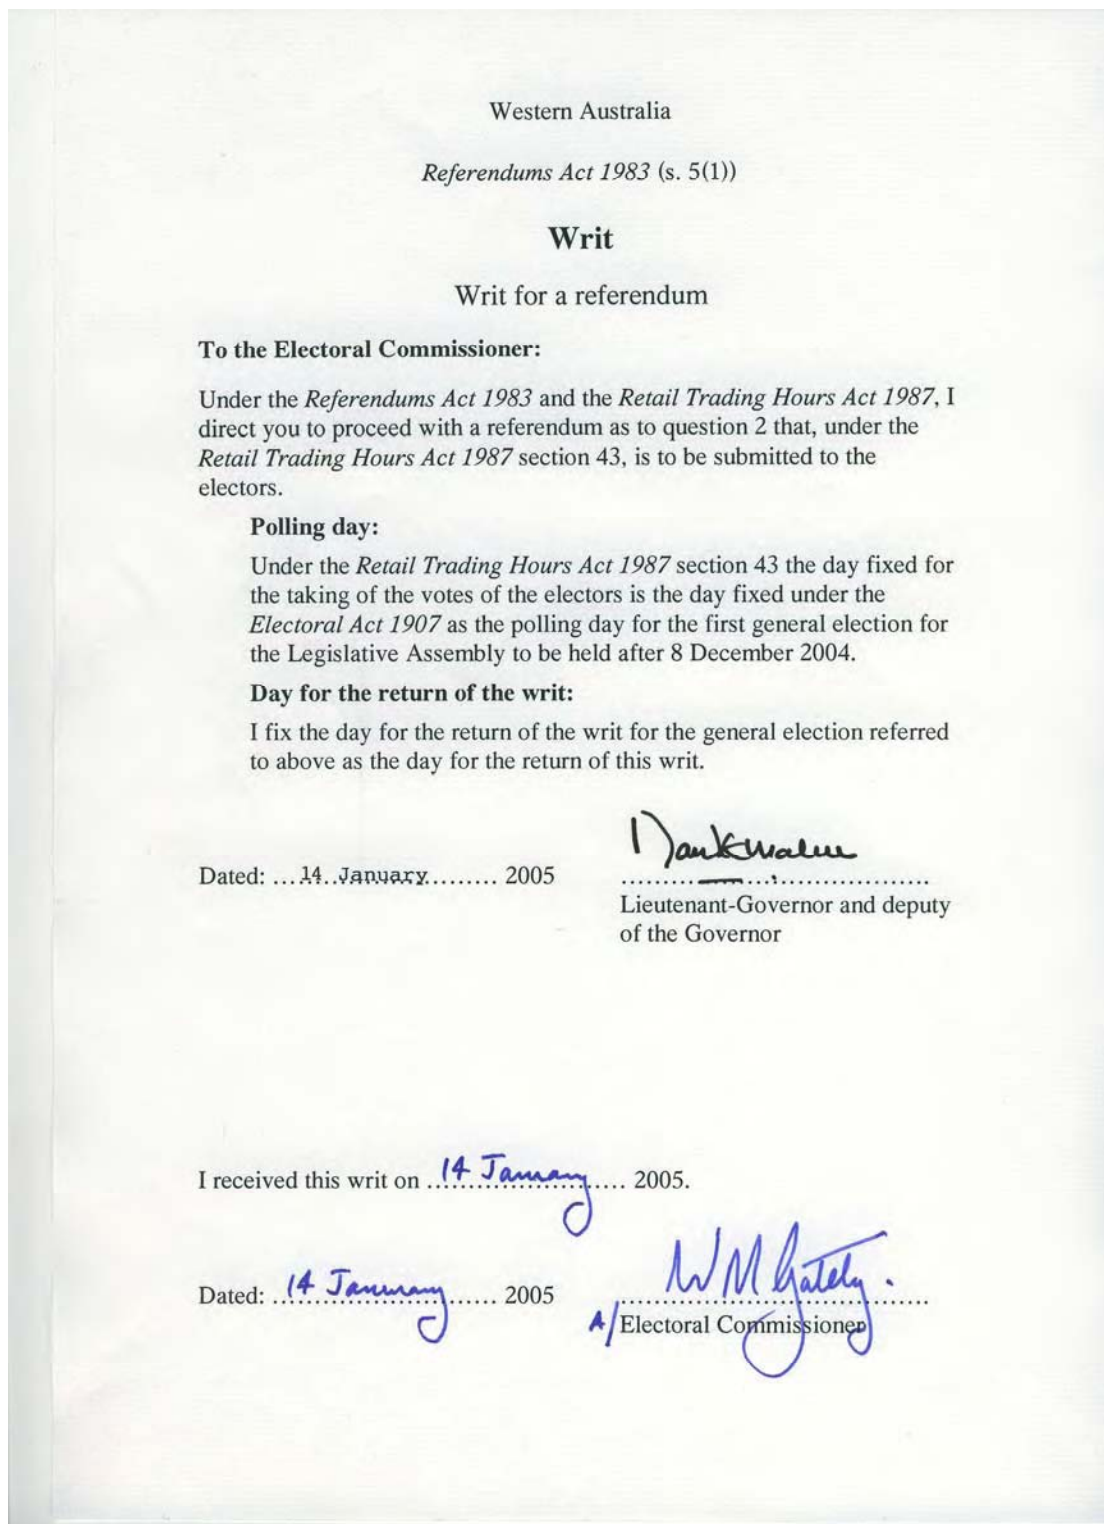 Western Australia
Referendums Act 1983 (s. 5(1))
Writ
Writ for a referendum
To the Electoral Commissioner:
Under the Referendums Act 1983 and the Retail Trading Hours Act 1987, I
direct you to proceed with a referendum as to question 2 that, under the
Retail Trading Hours Act 1987 section 43, is to be submitted to the
electors.
Polling day:
Under the Retail Trading Hours Act 1987 section 43 the day fixed for
the taking of the votes of the electors is the day fixed under the
Electoral Act 1907 as the polling day for the first general election for
the Legislative Assembly to be held after 8 December 2004.
Day for the return of the writ:
I fix the day for the return of the writ for the general election referred
to above as the day for the return of this writ.
Dated: ...14..January......... 2005
Lieutenant-Governor and deputy
of the Governor
I received this writ on 14 January 2005.
Dated: 14 January 2005
W M Gately.
A/Electoral Commissioner